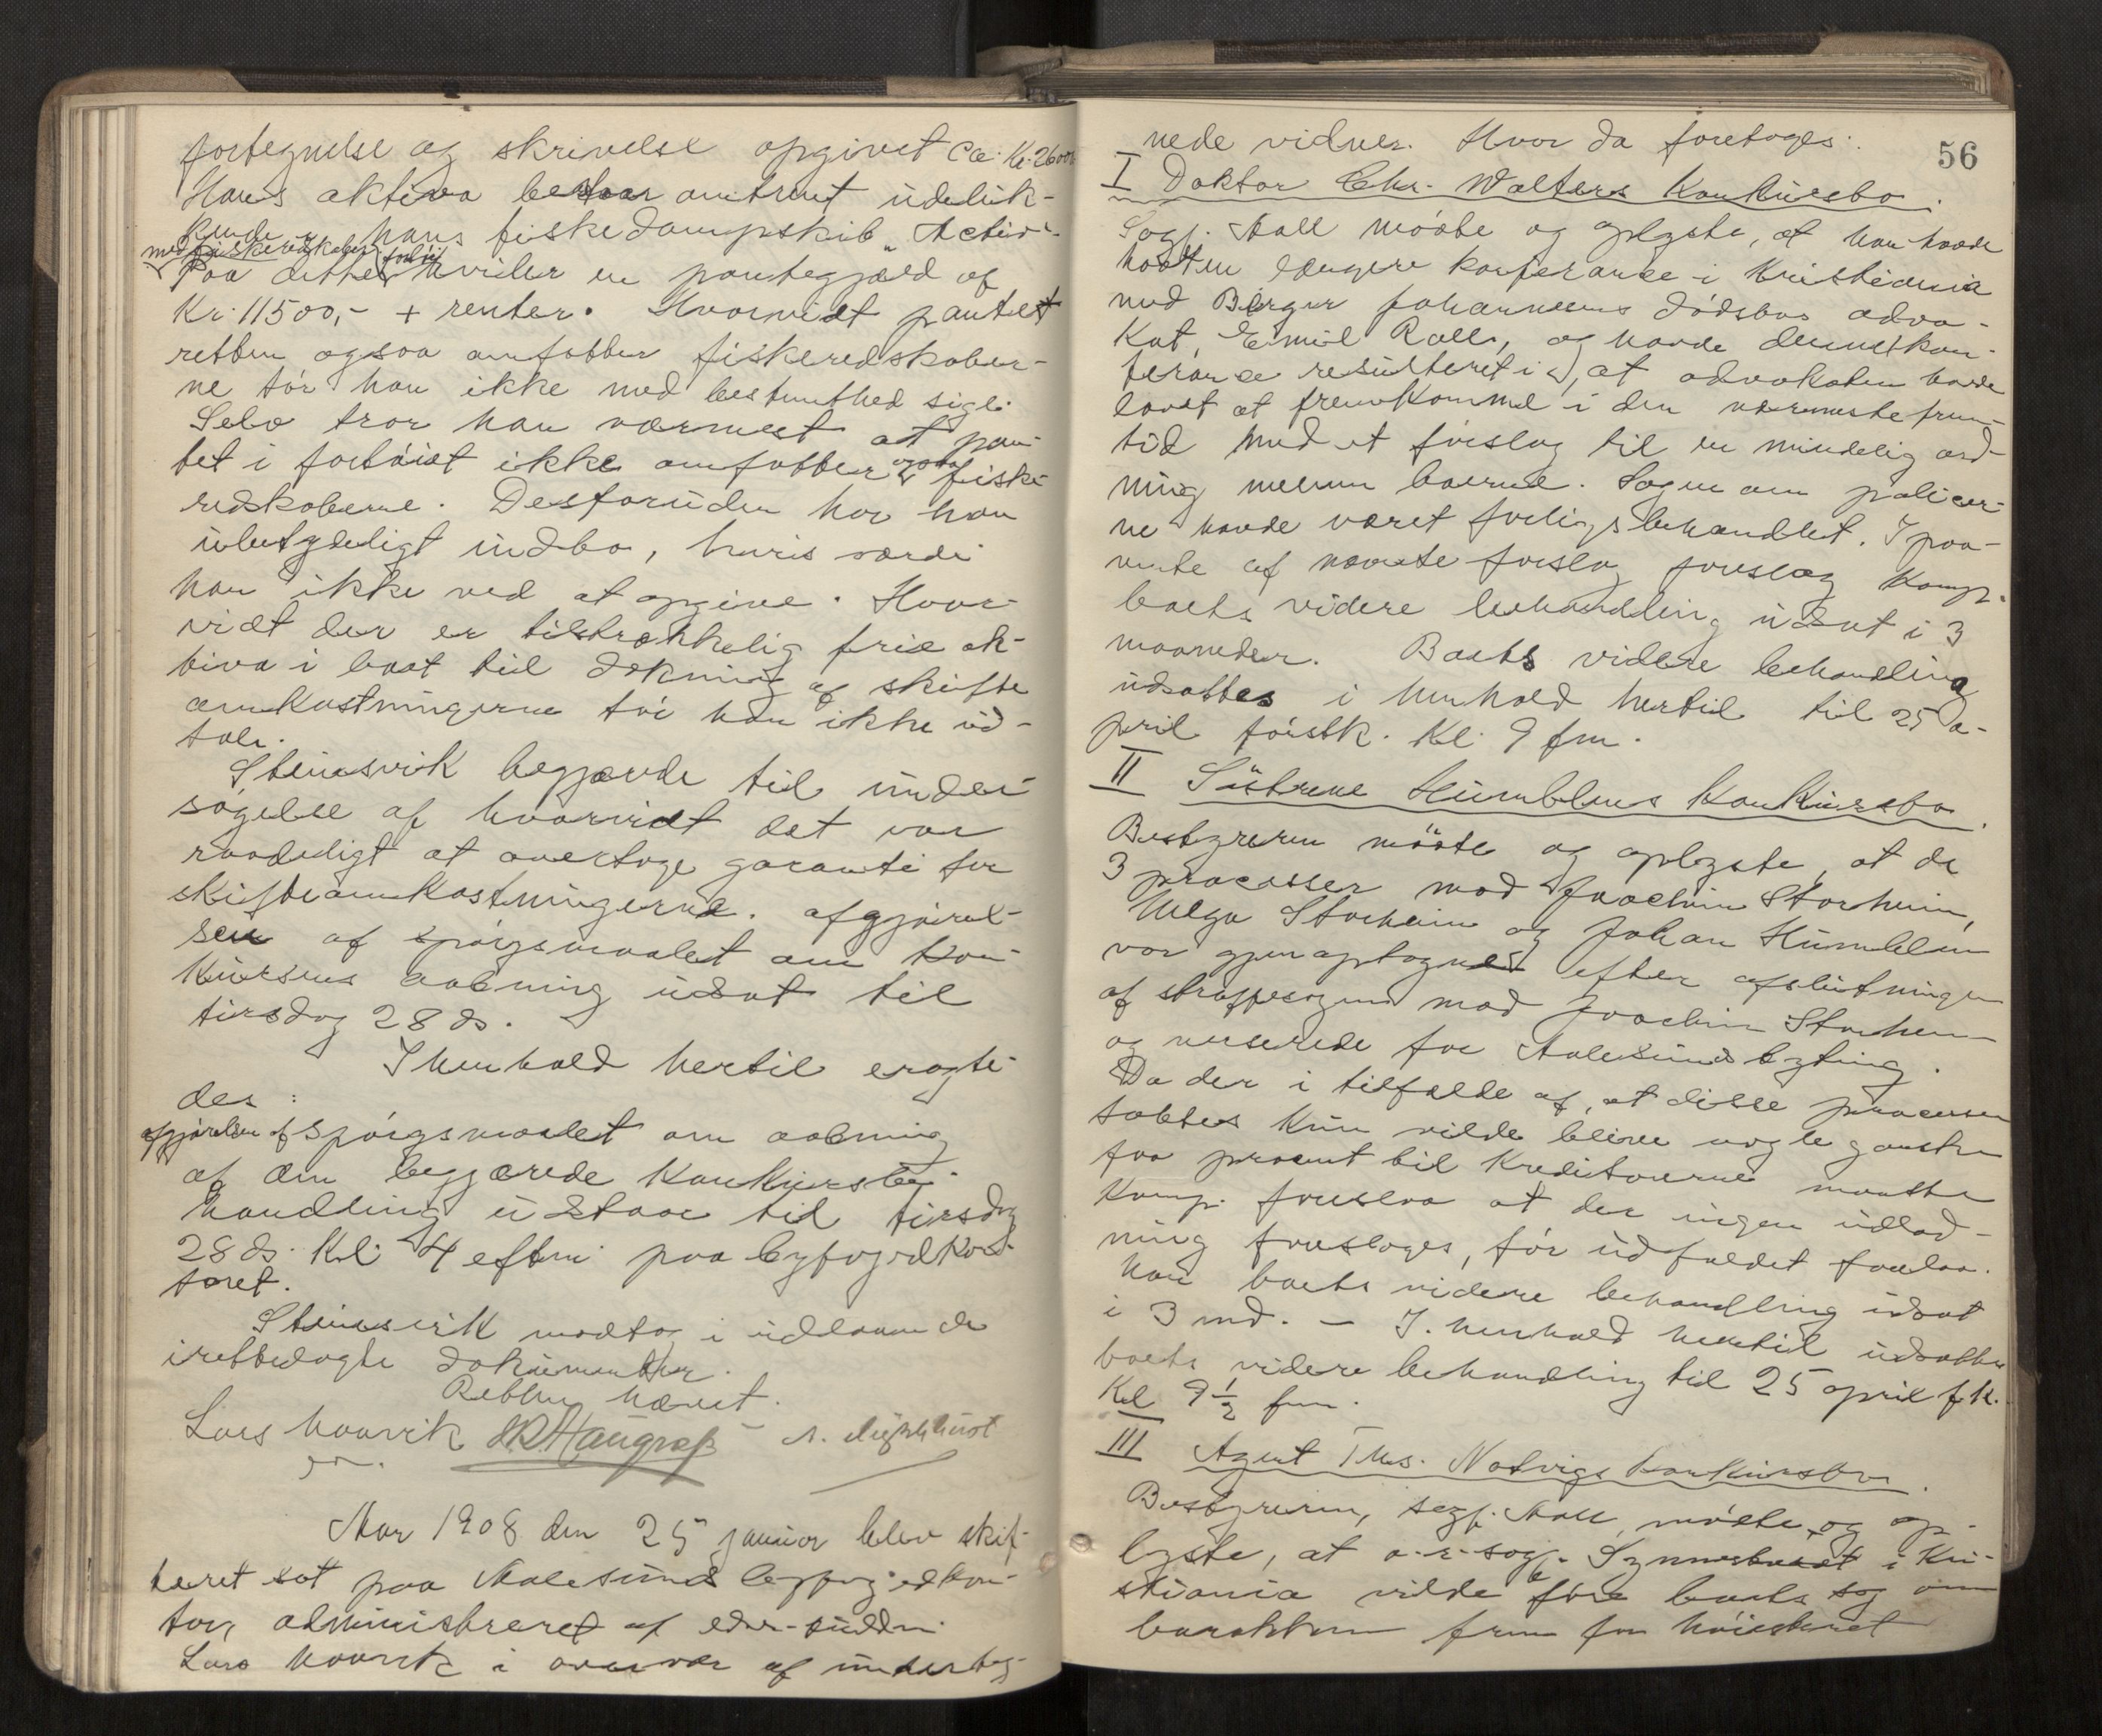 fortegnelse og skrivelse opgivet ca. Kr. 26000
Hans aktiva bestaar omtrent udeluk-
kende i hans fiskedampskib „Activ“
med fiskeredskaber
Paa dette hviler en pantegjæld af
Kr. 11500,- + renter. Hvorvidt pantet
retten ogsaa omfatter fiskeredskaber-
ne tør han ikke med bestemthed sige.
Selv tror han nærmest at pan-
tet i forhøiet ikke omfatter ogsaa fiske-
redskaberne. Desforuden har han
ubetydeligt indbo, hvis værdi
han ikke ved at opgive. Hvor-
vidt der er tilstrækkelig frie ak-
tiva i boet til dækning af skifte
omkostningerne tør han ikke ud-
tale.
Steinsvik begjærede til under-
søgelse af hvorvidt det var
raadeligt at overtage garanti for
skifteomkostningerne. afgjørel-
sen af spørgsmaalet om kon-
kursens aabning udsat til
tirsdag 28 ds.
I henhold hertil eragte-
des:
afgjørelsen af spørgsmaalet om aabning
af den begjærede konkursbe-
handling udstaar til tirsdag
28 ds. Kl. 4 eftm. paa byfogedkon-
toret.
Steinsvik modtog i udlaan de
irettelagte dokumenter.
Retten hævet.
Lars Haavik
Aar 1908 den 25 januar blev skif-
teret sat paa Aalesunds byfogedkon-
tor, administreret af edsv. fuldm.
Lars Haavik i overvær af underteg-
56
nede vidner. Hvor da foretoges:
I Doktor Chr. Walters Konkursbo.
Sagf. Aall mødte og oplyste, at han havde
havt en længere konferanse i Kristiania
med Birger Johannesens dødsbos advo-
kat, Emil Ralls, og havde denne kon-
feranse resulteret i, at advokaten havde
lovet at fremkomme i den nærmeste frem-
tid med et forslag til en mindelig ord-
ning mellem boerne. Sagen om policer-
ne havde været forligsbehandlet. I paa-
vente af nævnte forslag foreslog komp.
boets videre behandling udsat i 3
maaneder. Boets videre behandling
udsattes i henhold hertil til 25 a-
pril førstk. Kl. 9 fm.
II Søstrene Humblens Konkursbo.
Bestyreren mødte og oplyste, at de
3 processer mod Joachim Storheim,
Helga Storheim og Johan Humblen
var gjenoptagnet efter afslutningen
af straffesagen mod Joachim Storheim
og verserede for Aalesunds byting.
Da der i tilfælde af, at disse processer
tabtes kun vilde blive nogle ganske
faa procent til kreditorerne maatte
komp. foreslaa at der ingen udlod-
ning foretages, før udfaldet forelaa.
Han boets videre behandling udsat
i 3 md. – I henhold hertil udsattes
boets videre behandling til 25 april f.k.
Kl. 9½ fm.
III Agent Ths. Natvigs konkursbo.
Bestyreren, sagf. Aall, mødte og op-
lyste, at o.r.sagf. i Kri-
stiania vilde føre boets sag om
barakken frem for høiesteret